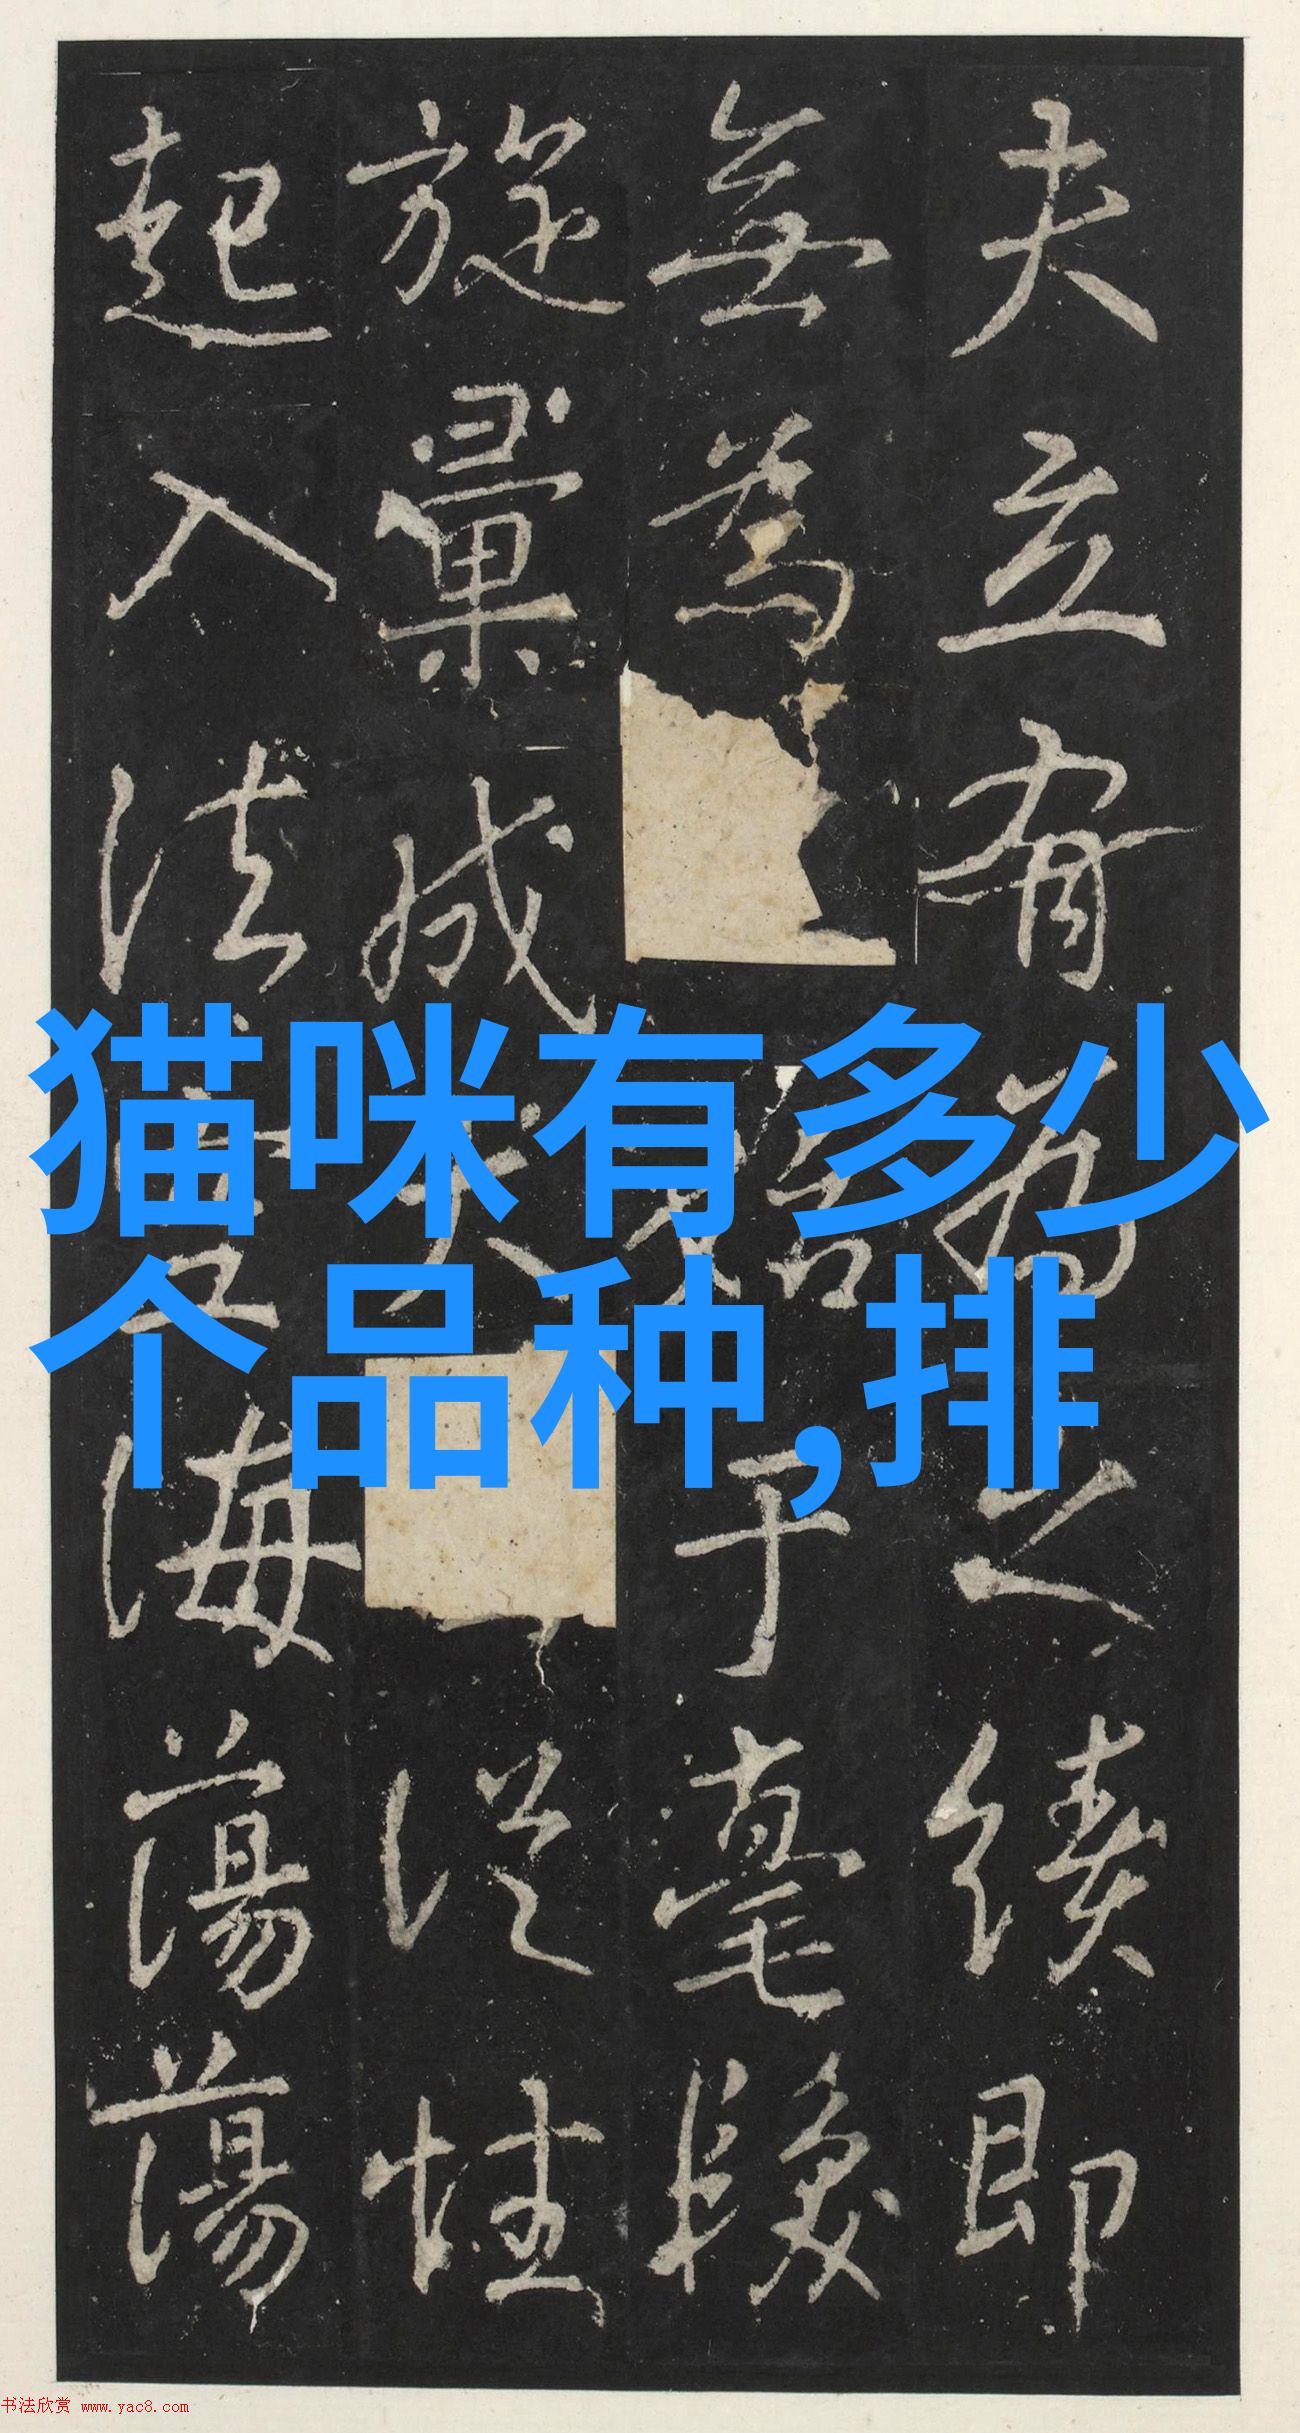 夫立有為之續即
無為于毫
旋彙成大從性
起入法空海蕩蕩
猫咪有多少
个品种,排
书法欣赏 www.yac8.com